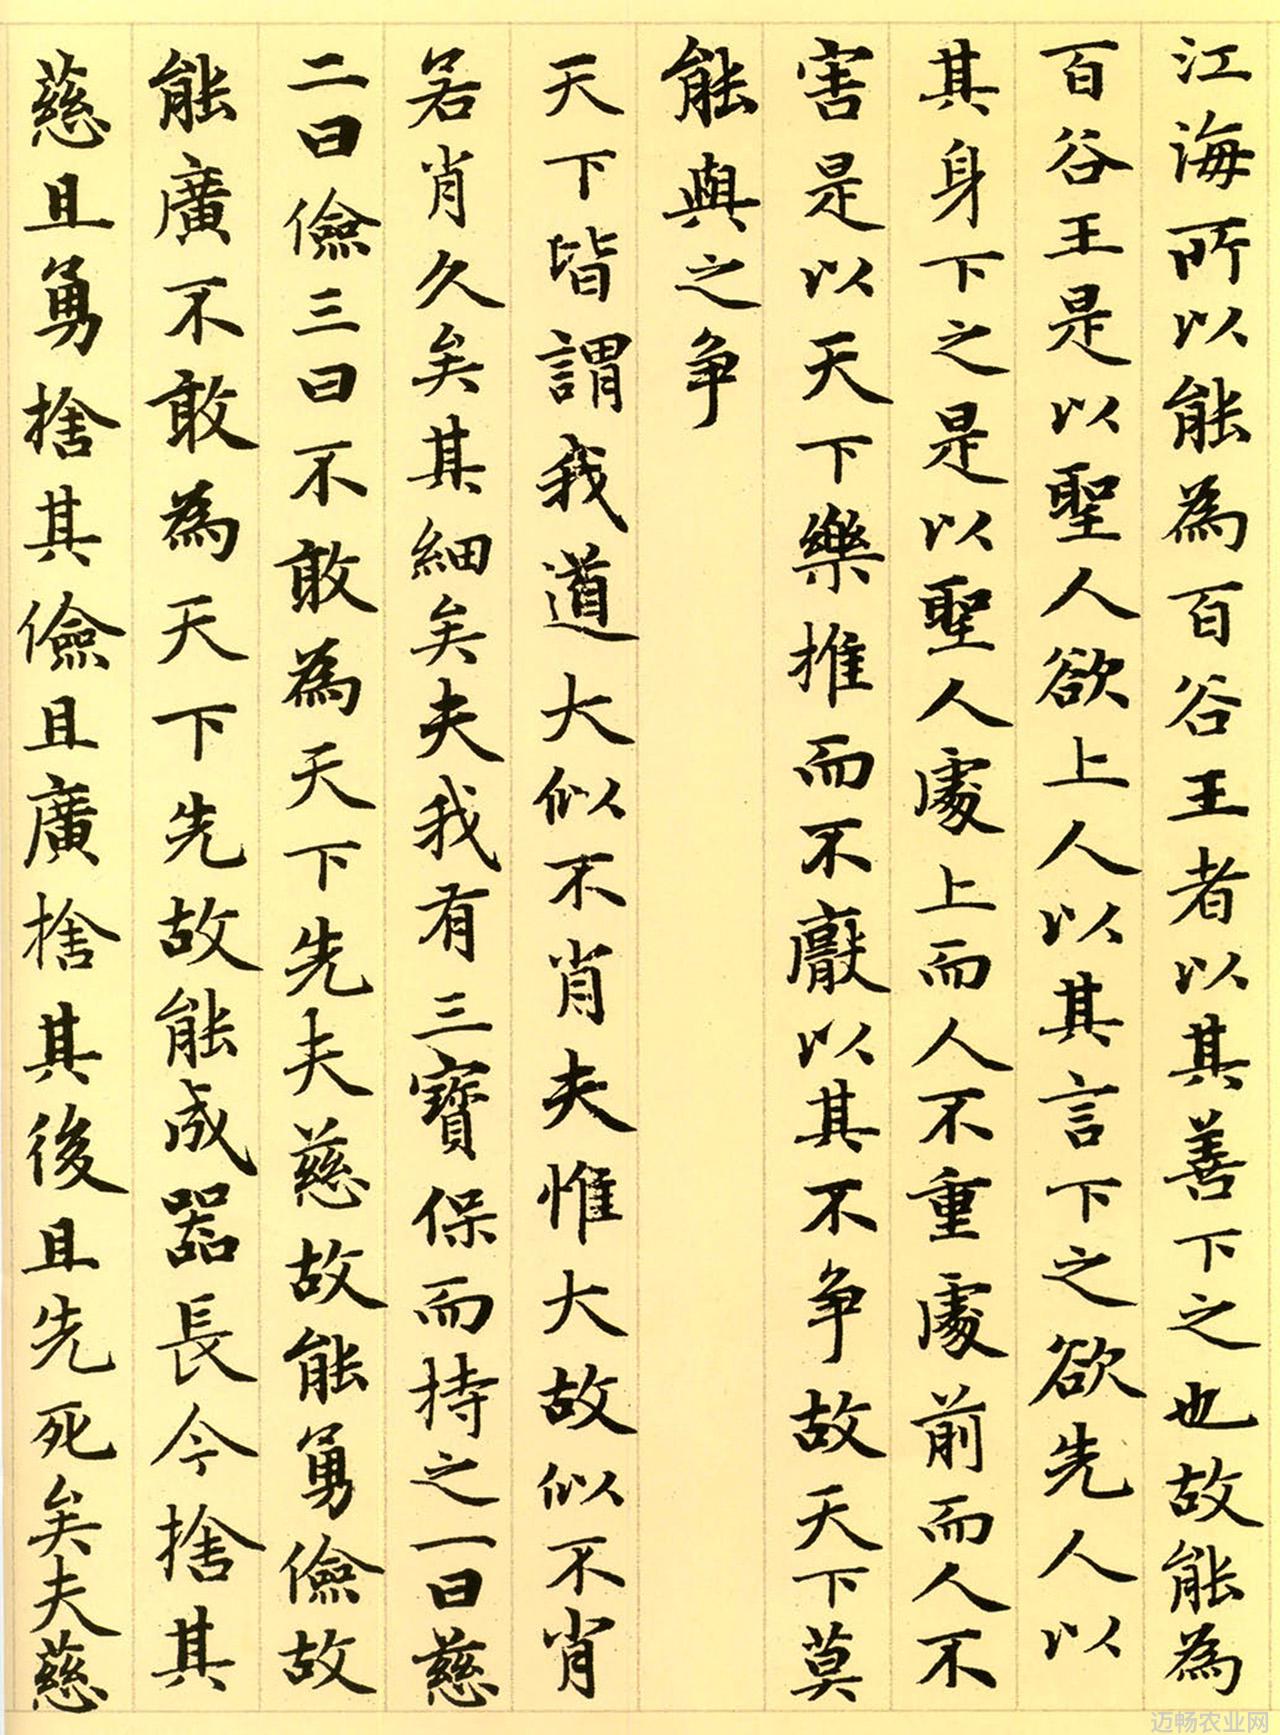 江海所以能為百谷王者以其善下之也故能為
百谷王是以聖人欲上人以其言下之欲先人以
其身下之是以聖人處上而人不重處前而人不
害是以天下樂推而不厭以其不争故天下莫
能與之争
天下皆謂我道大似不肖夫惟大故似不肖
若肖久矣其細矣夫我有三寶保而持之一曰慈
二曰儉三曰不敢為天下先夫慈故能勇儉故
能廣不敢為天下先故能成器長今捨其
慈且勇捨其儉且廣捨其後且先死矣夫慈
迈畅农业网